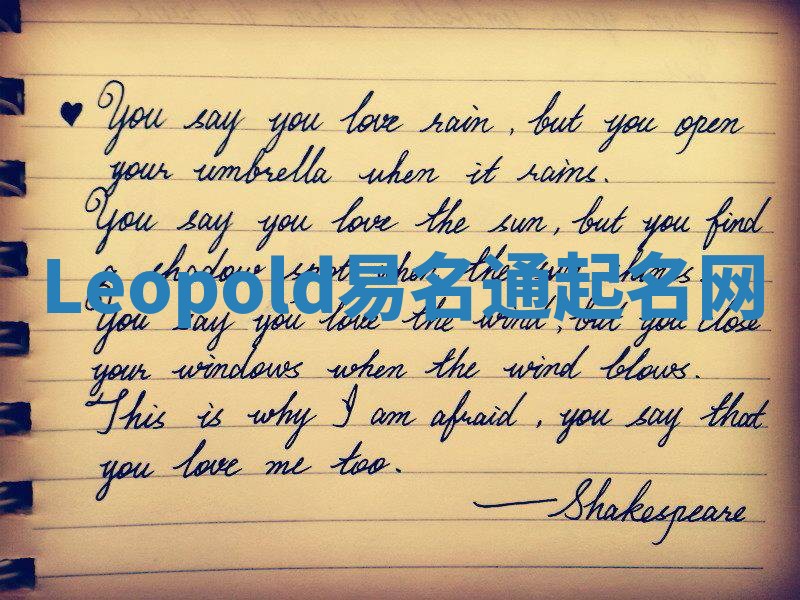 ♥ You say you love rain, but you open
your umbrella when it rains.
You say you love the sun, but you find
a shadow spot when the sun shines.
Leopold易名通起名网
You say you love the wind, but you close
your windows when the wind blows.
This is why I am afraid, you say that
you love me too.
—Shakespeare